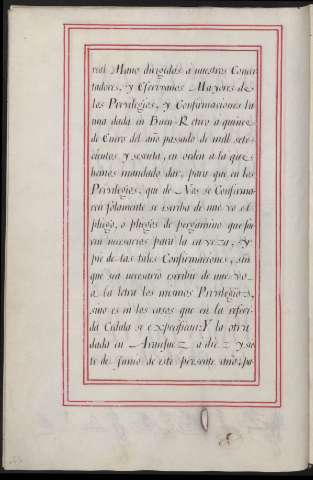 real Mano dirigidas à nuestros Concer-
tadores, y Escrivanos Mayores de
los Privilegios, y Confirmaciones la
una dada en Buen-Retiro à quince
de Enero del año passado de mill sete-
cientos y sesenta, en orden a la que
hemos mandado dar, para que en los
Privilegios, que de Nos se Confirma-
ren solamente se escriba de nuevo el
pliego, o pliegos de pergamino que fue-
ren necesarios para la caveza, y
pie de las tales Confirmaciones, sin
que sea necesario escribir de nuevo
a la letra los mismos Privilegios,
sino es en los casos que en la referi-
da Cedula se expresan: Y la otra
dada en Aranjuez a diez y sie-
te de Junio de este presente año, pa-